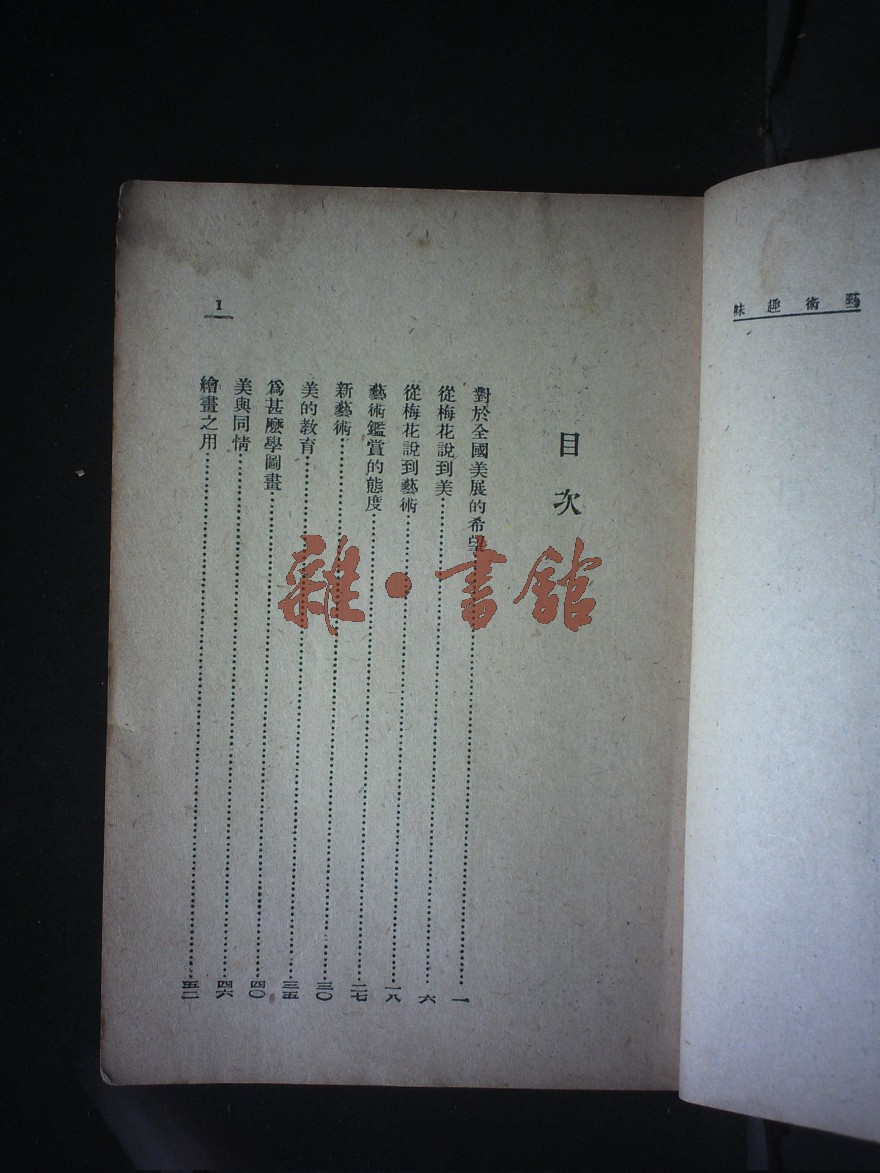 藝術趣味
目次
對於全國美展的希望……一
從梅花說到美……六
從梅花說到藝術……一八
藝術鑑賞的態度……二七
新藝術……三〇
美的教育……三五
爲甚麽學圖畫……四〇
美與同情……四六
繪畫之用……五二
1
雜·書館